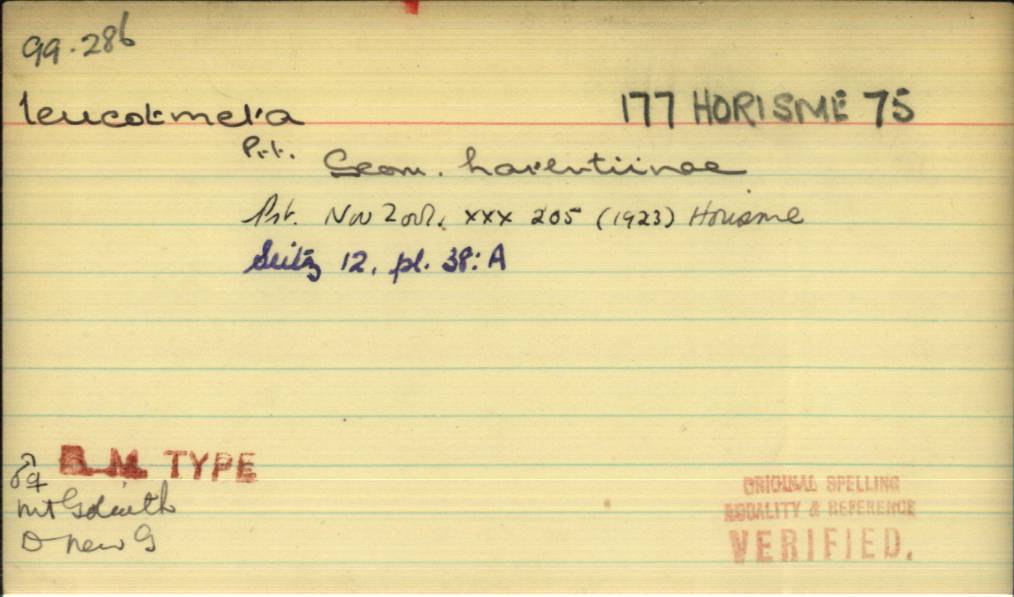 99.286
leucotmeta 177 HORISME 75
Prt. Geom. larentiinae
Prt. Nov Zool. xxx 205 (1923) Horisme
Seitz 12, pl. 38:A
B.M. TYPE
♂♀
Mt Goliath
D New G
ORIGINAL SPELLING
LOCALITY & REFERENCE
VERIFIED.